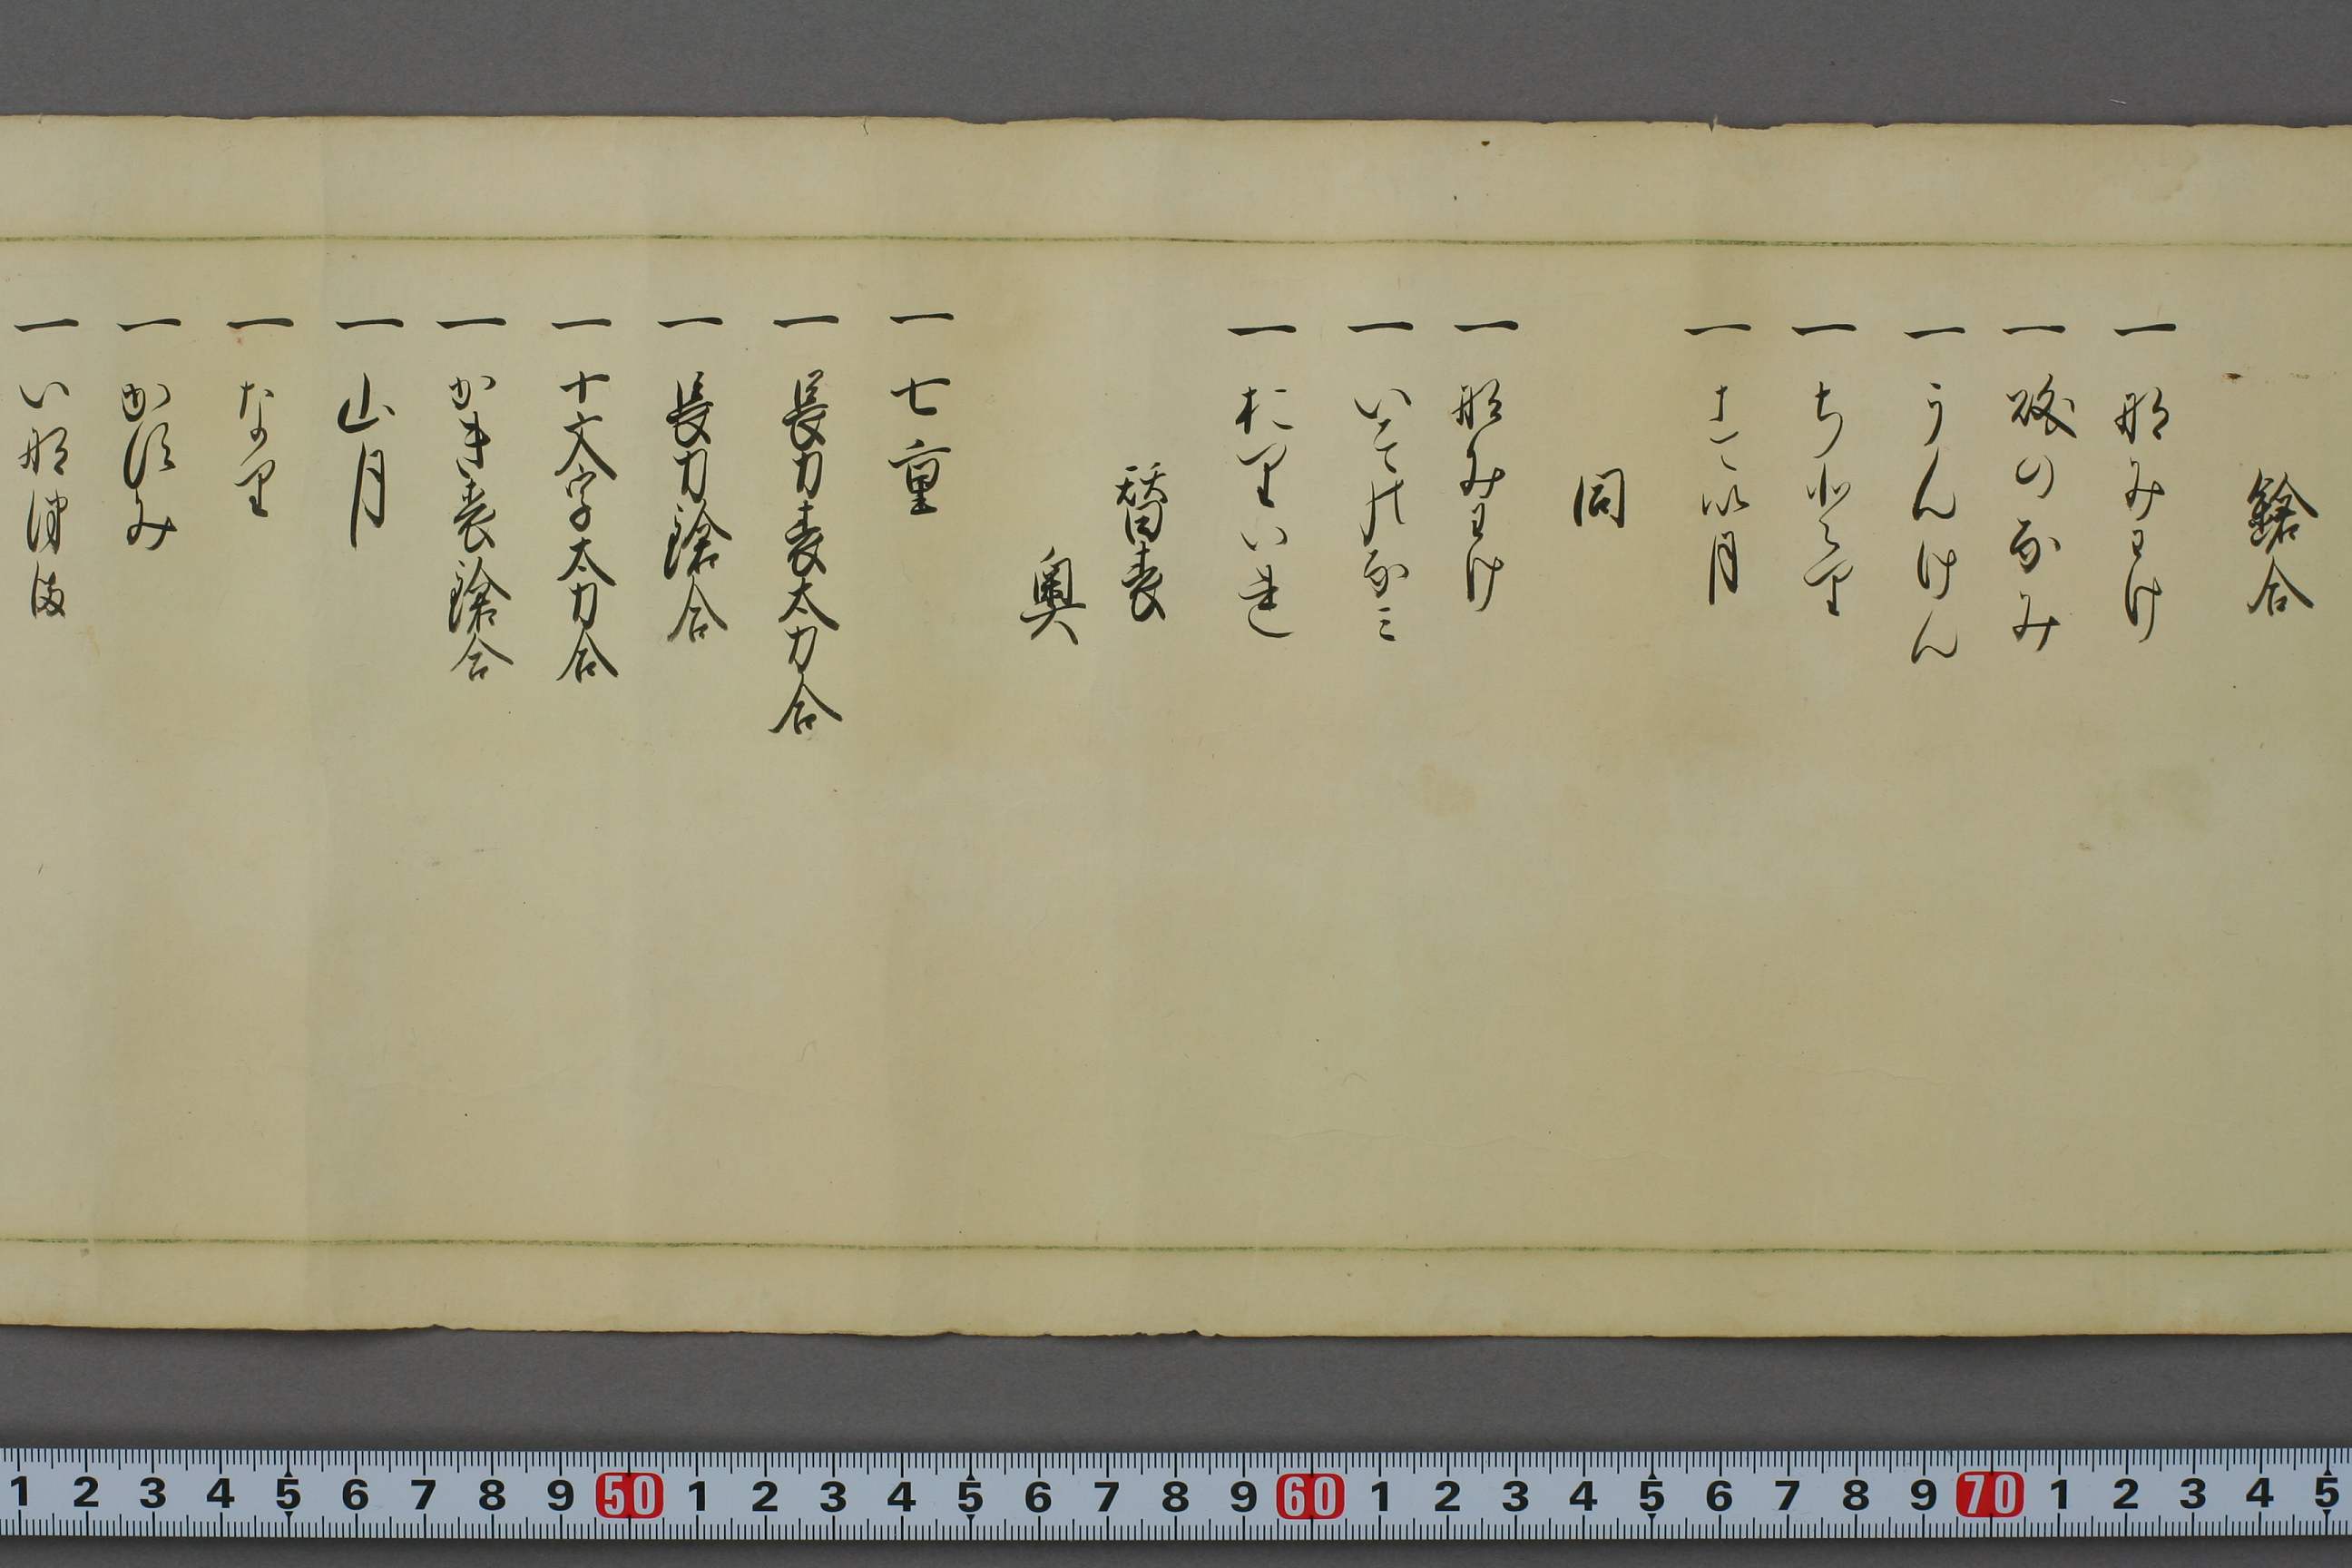 鎗合
一 那みわけ
一 磯のなみ
一 うんけん
一 ちとり
一 すい月
同
一 那みわけ
一 いそのなミ
一 おりいれ
替表
奥
一 七重
一 長刀表太刀合
一 長刀鎗合
一 十文字太刀合
一 かき表鎗合
一 山月
一 なのり
一 かすみ
一 い那津満
1 2 3 4 5 6 7 8 9 50 1 2 3 4 5 6 7 8 9 60 1 2 3 4 5 6 7 8 9 70 1 2 3 4 5